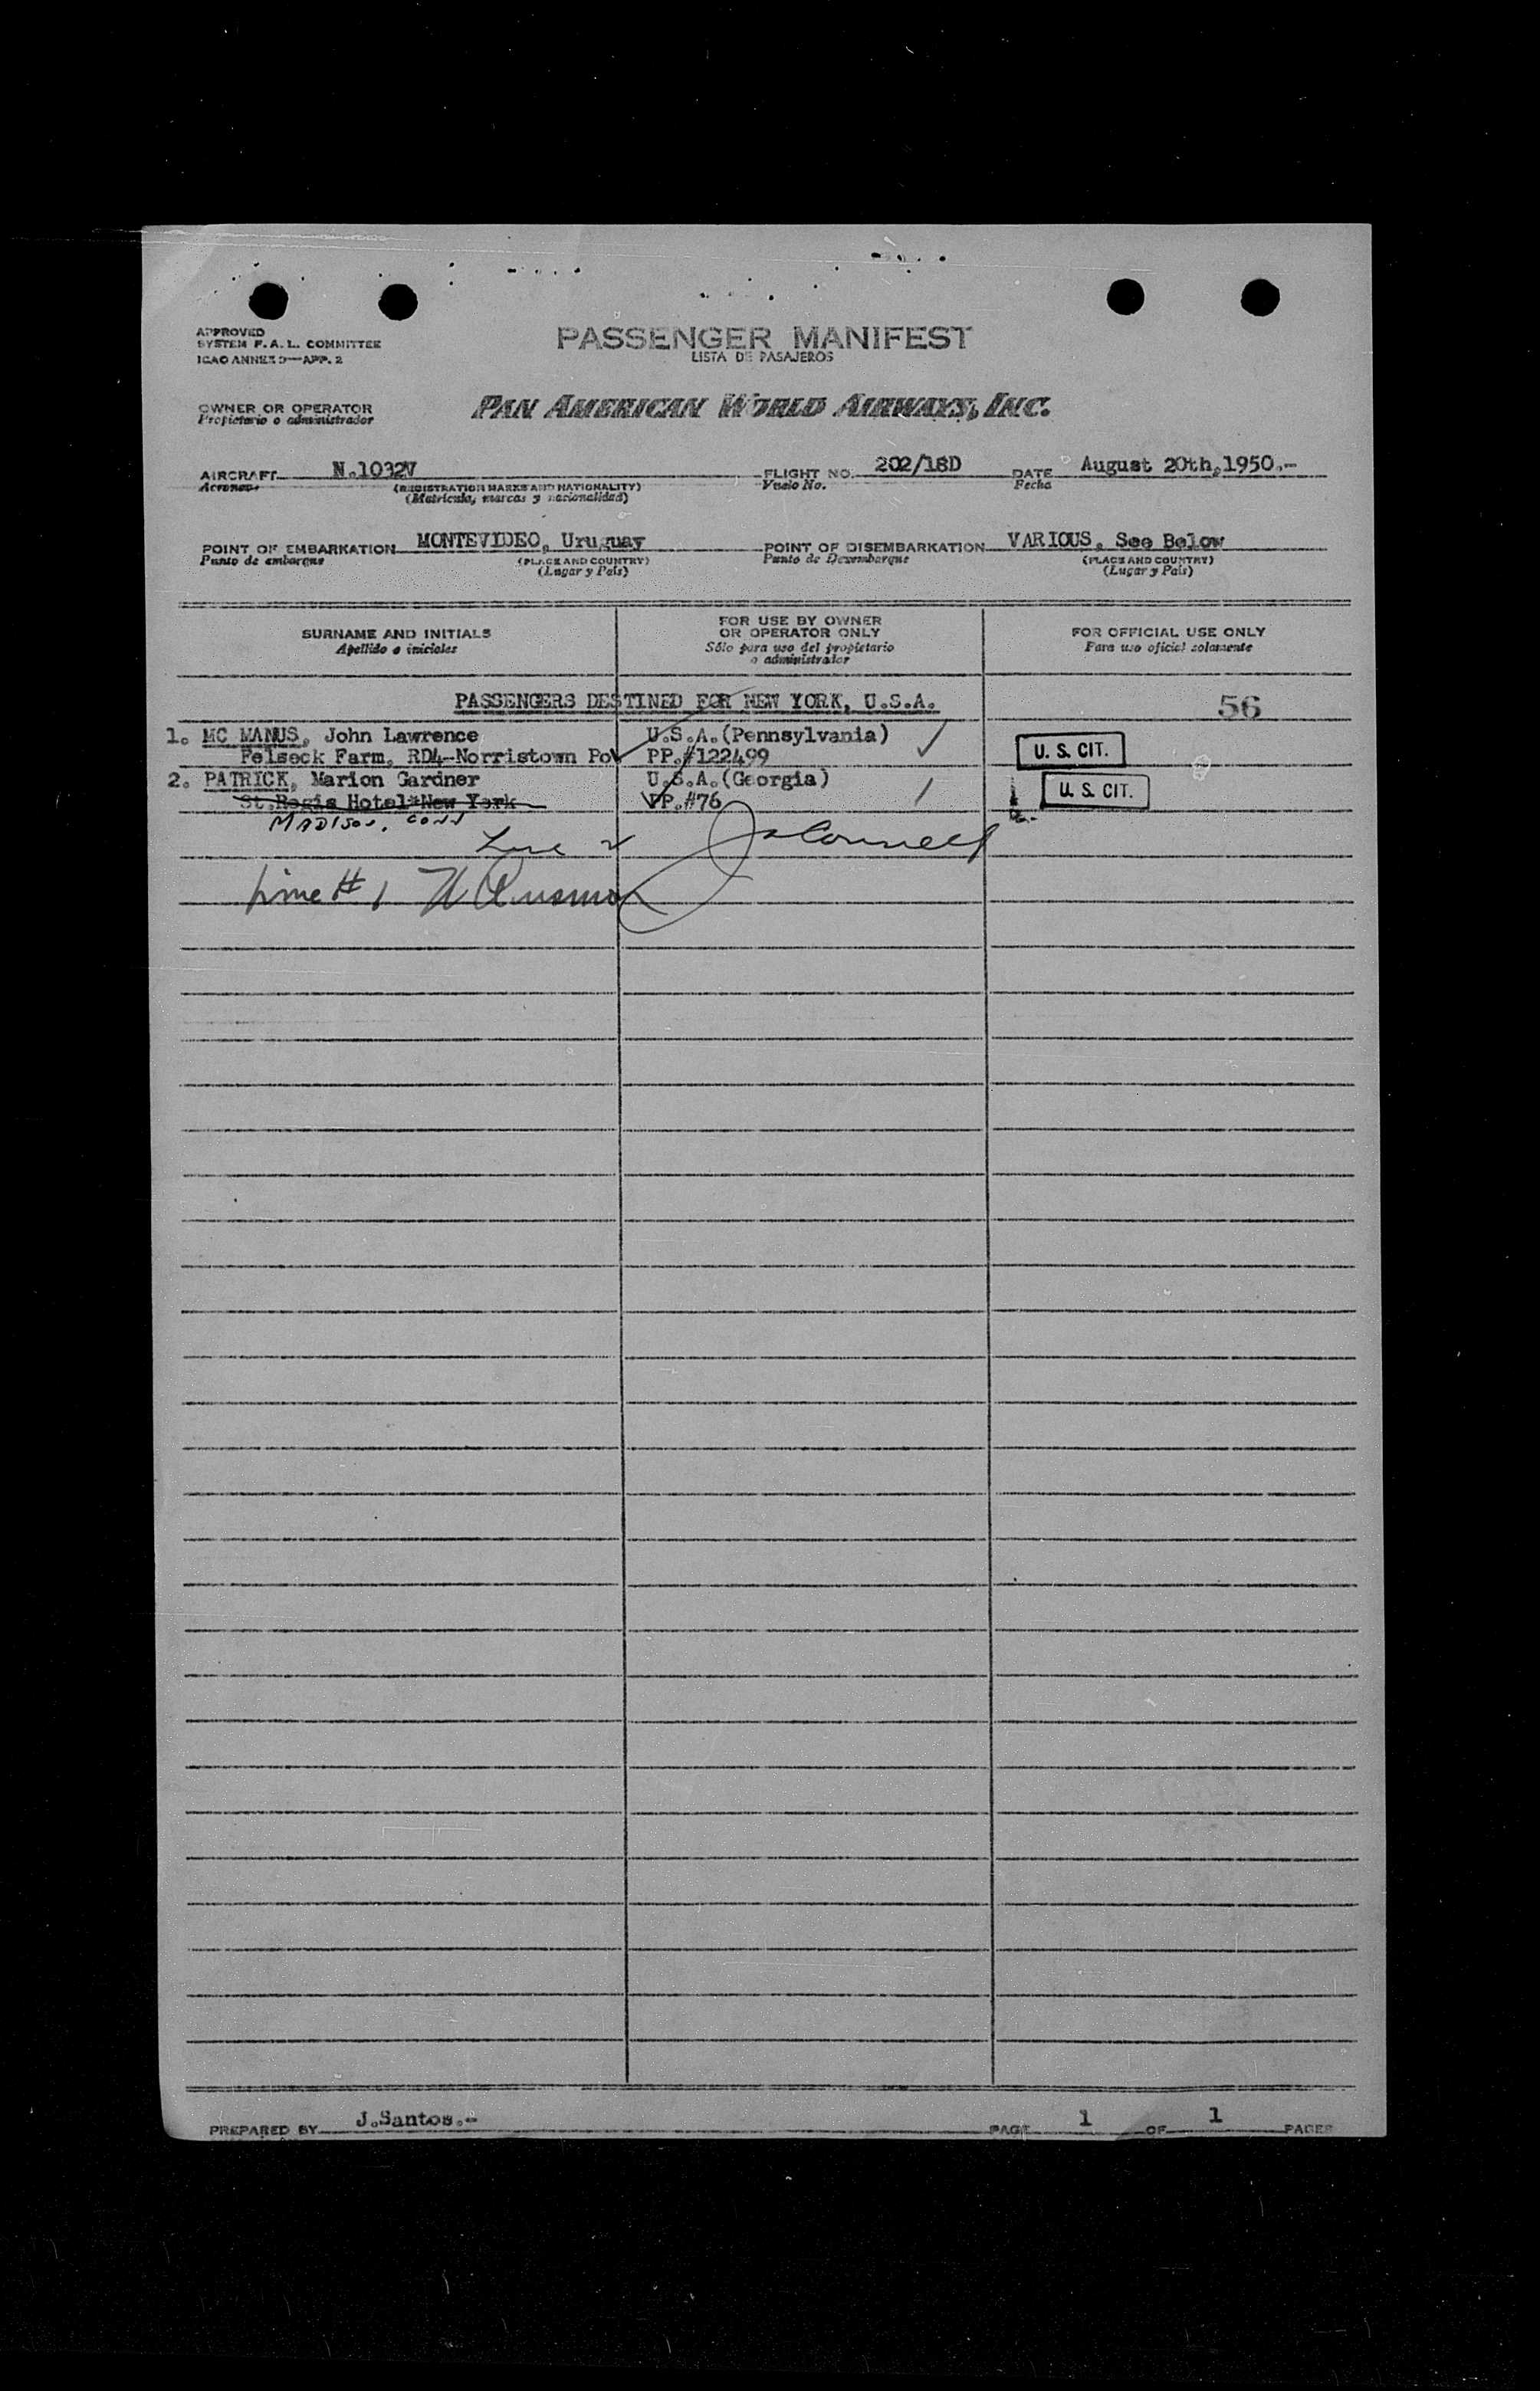 APPROVED
SYSTEM F. A. L. COMMITTEE
ICAO ANNEX 9—APP. 2
PASSENGER MANIFEST
LISTA DE PASAJEROS
OWNER OR OPERATOR
Propietario o administrador
PAN AMERICAN WORLD AIRWAYS, INC.
AIRCRAFT N.1032V FLIGHT NO. 202/18D DATE August 20th,1950.-
Aeronave (REGISTRATION MARKS AND NATIONALITY) Vuelo No. Fecha
(Matrícula, marcas y nacionalidad)
POINT OF EMBARKATION MONTEVIDEO, Uruguay POINT OF DISEMBARKATION VARIOUS, See Below
Punto de embarque (PLACE AND COUNTRY) Punto de Desembarque (PLACE AND COUNTRY)
(Lugar y País) (Lugar y País)
SURNAME AND INITIALS
Apellido e iniciales
FOR USE BY OWNER
OR OPERATOR ONLY
Sólo para uso del propietario
o administrador
FOR OFFICIAL USE ONLY
Para uso oficial solamente
PASSENGERS DESTINED FOR NEW YORK, U.S.A. 56
1. MC MANUS, John Lawrence U.S.A.(Pennsylvania)
Felseck Farm, RD4-Norristown Po PP.#122499 U. S. CIT.
2. PATRICK, Marion Gardner U.S.A.(Georgia)
St.Regis Hotel-New York PP.#76 U. S. CIT.
MADISON, CONN
Line 2
Line # 1
PREPARED BY J.Santos.- PAGE 1 OF 1 PAGES